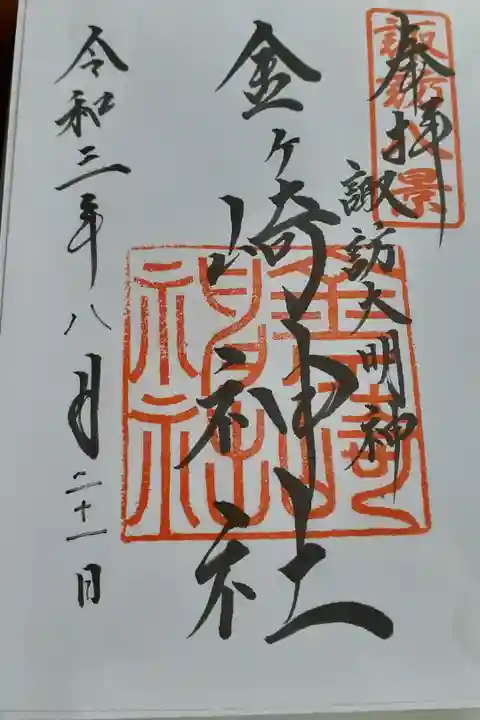 奉拝
諏訪八景
諏訪大明神
金ヶ崎神社
令和三年八月二十一日